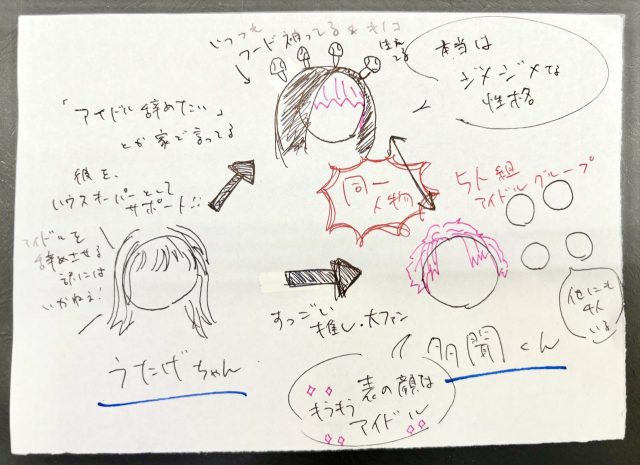 いつつもフード被ってる&キノコ
生えてる
本当は
ジメジメな
性格
「アイドル辞めたい」
とか家で言ってる
彼を、
ハウスキーパーとして
サポート!!
アイドルを
辞めさせる
訳には
いかねぇ!
同一
人物
5人組
アイドルグループ
他にも
4人
いる
すっごい
推し・大ファン
うたげちゃん
多聞くん
表の顔は
アイドル